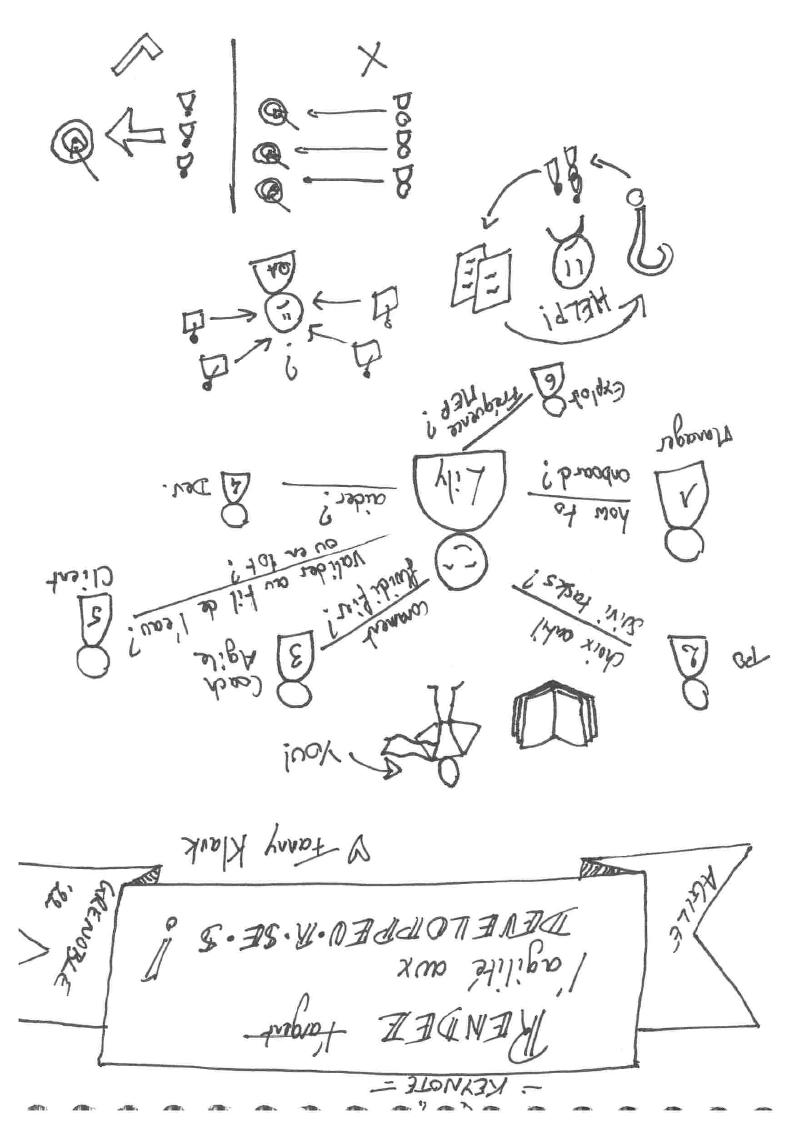 = KEYNOTE =
AGILE
RENDEZ l'argent
l'agilité aux
DEVELOPPEU·R·SE·S !
GRENOBLE
'22
♡ Fanny Klauk
YOU!
PO
2
choix outil
suivi tasks?
3
Coach
Agile
comment
fluidifier?
5
Client
valider au fil de l'eau?
ou en lot?
Manager
1
how to
onboard?
Lily
4
Dev.
aider?
6
Exploit
Fréquence
MEP?
HELP!
?
QA
?